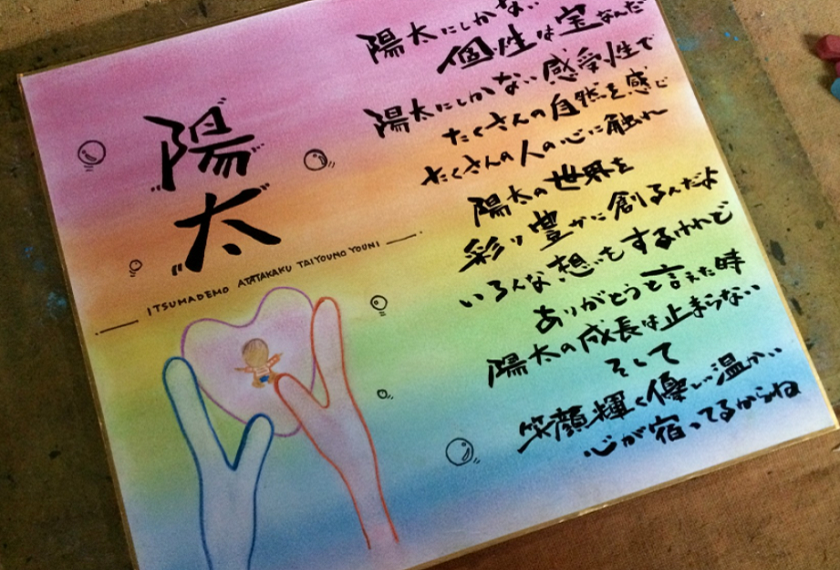 陽太
ITSUMADEMO ATATAKAKU TAIYOUNO YOUNI
陽太にしかない
個性は宝なんだ
陽太にしかない感受性で
たくさんの自然を感じ
たくさんの人の心に触れ
陽太の世界を
彩り豊かに創るんだよ
いろんな想いもするけれど
ありがとうと言えた時
陽太の成長は止まらない
そして
笑顔輝く優しい温かい
心が宿ってるからね